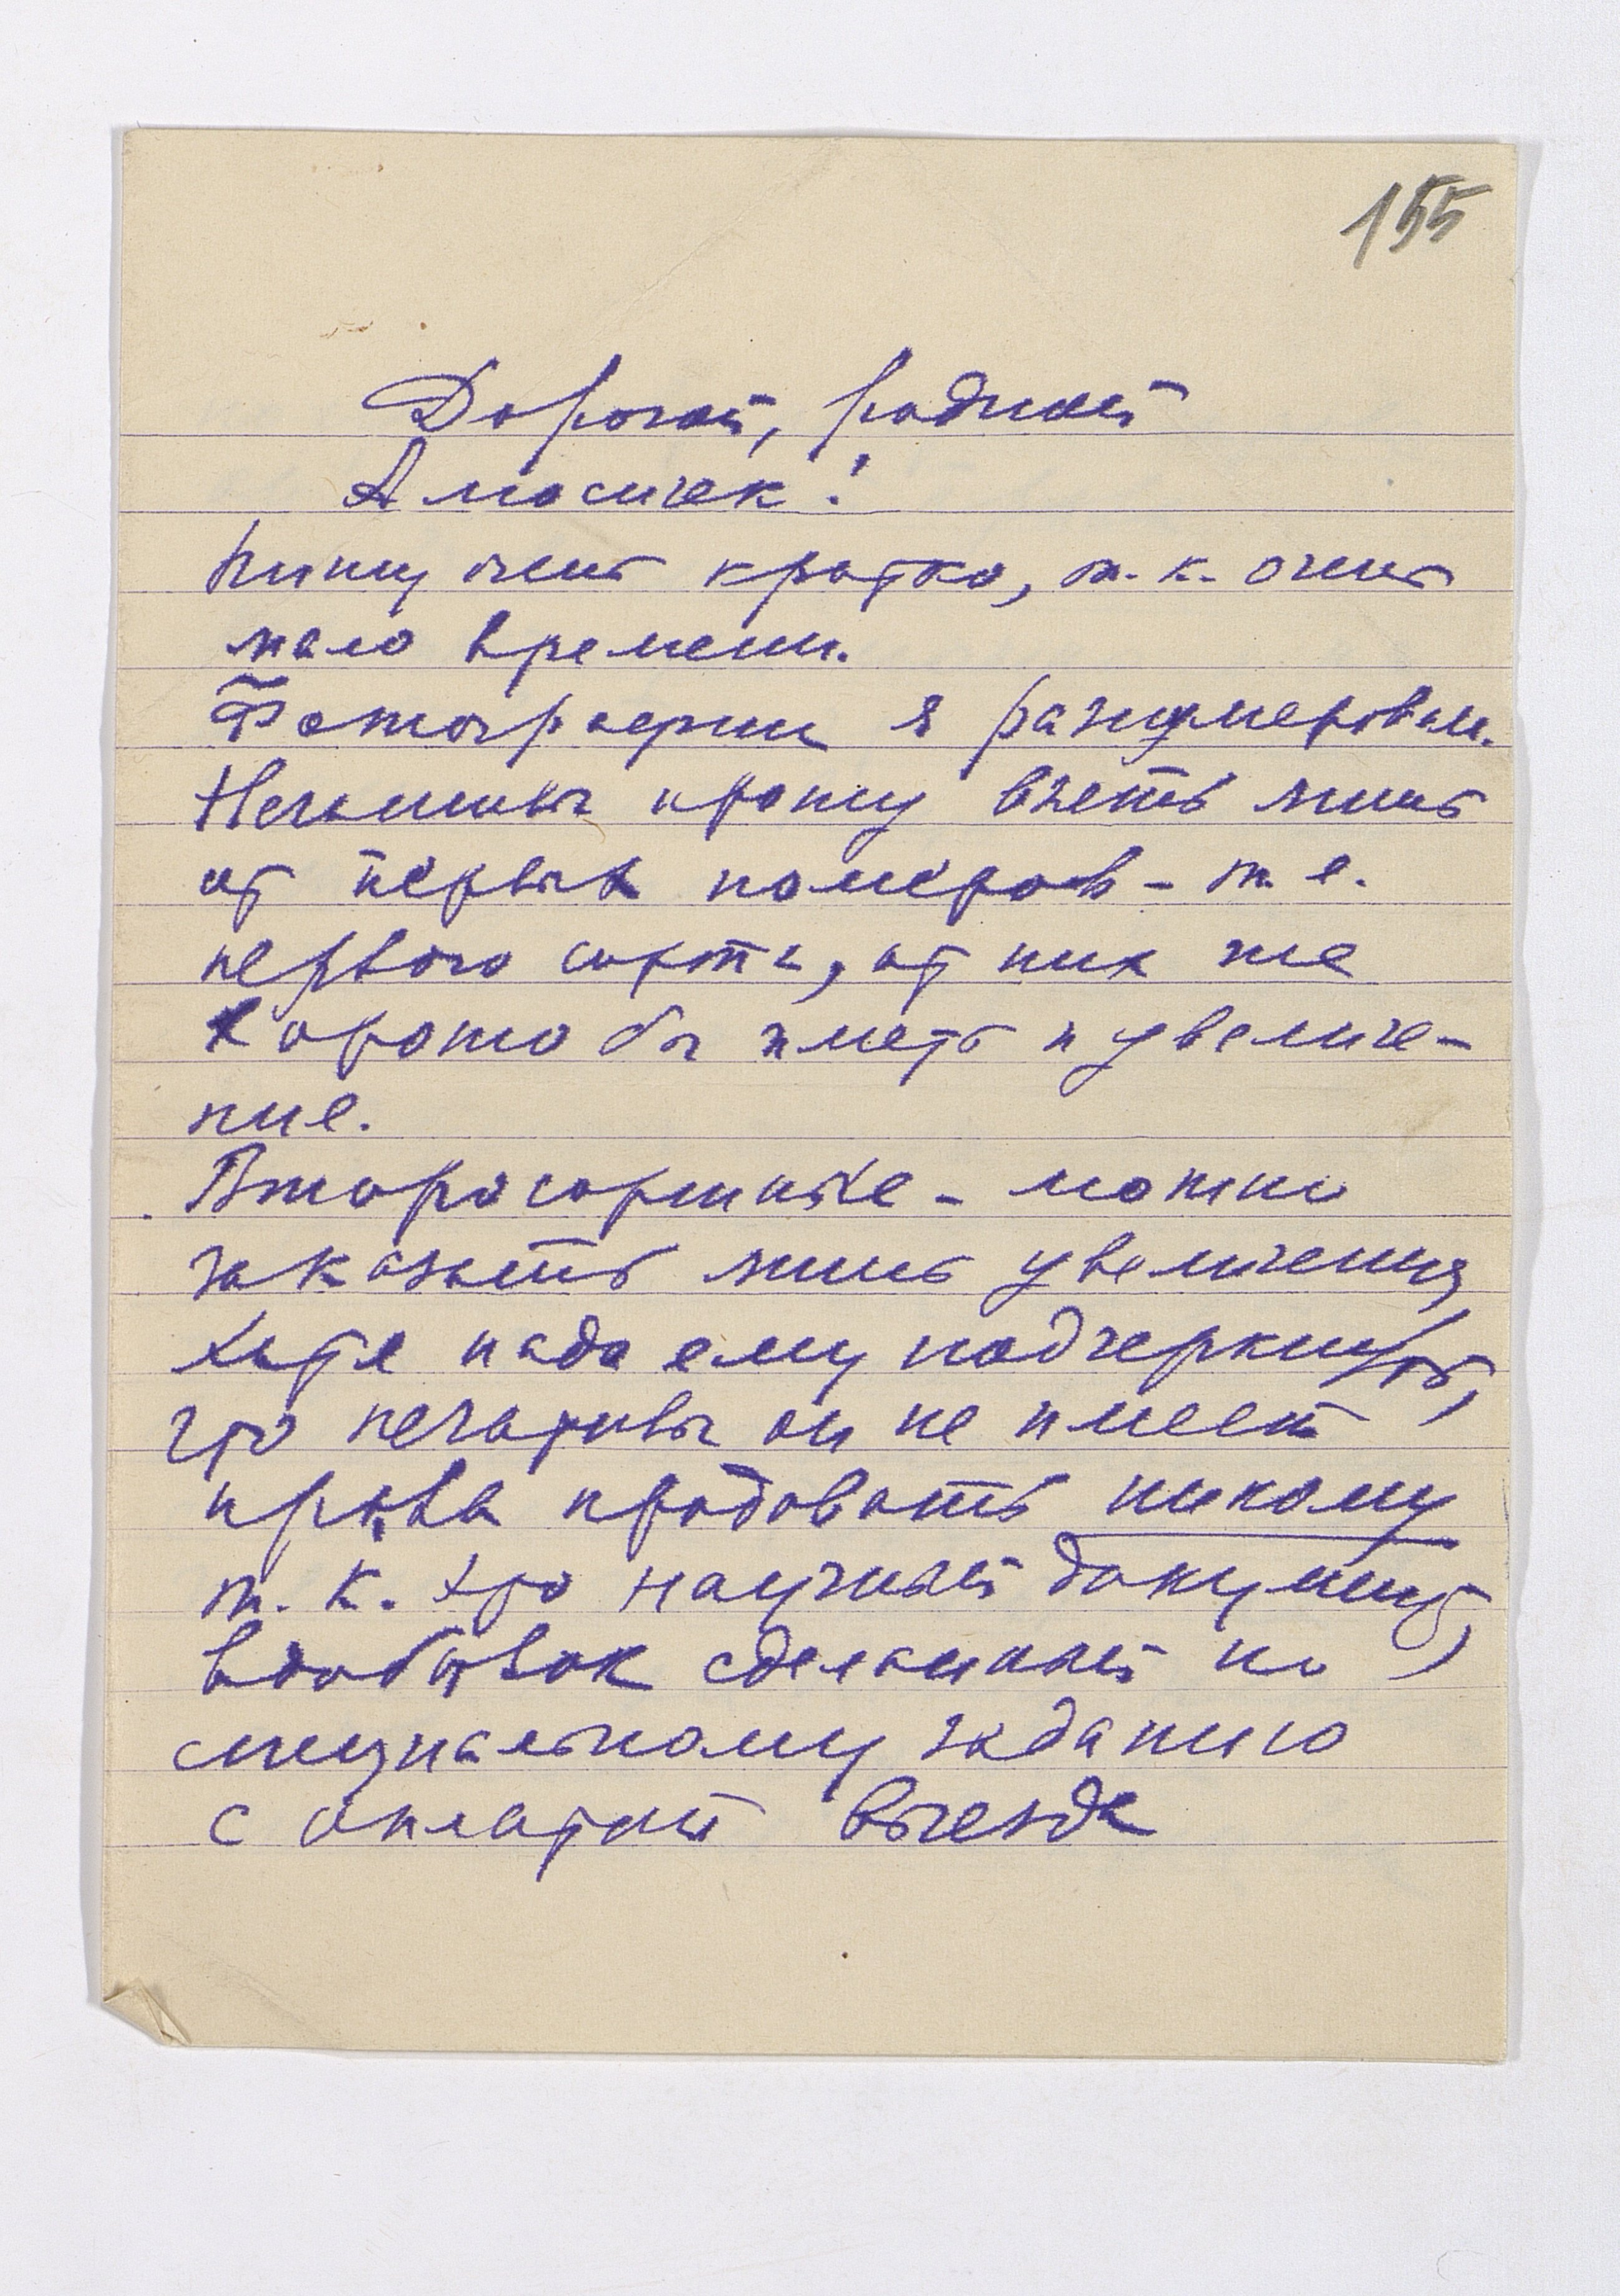 155
Дорогой, родной
Амосичек!
Пишу очень кратко, т.к. очень
мало времени.
Фотографии я разнумеровал.
Негативы прошу взять лишь
от первых номеров – т. е.
первого сорта, от них же
хорошо бы иметь и увеличе-
ние.
Второсортные – можно
заказать лишь увеличения,
хотя надо ему подчеркнуть,
что негативы он не имеет
права продавать никому
т. к. это научный документ,
вдобавок сделанный по
специальному заданию
с оплатой выезда